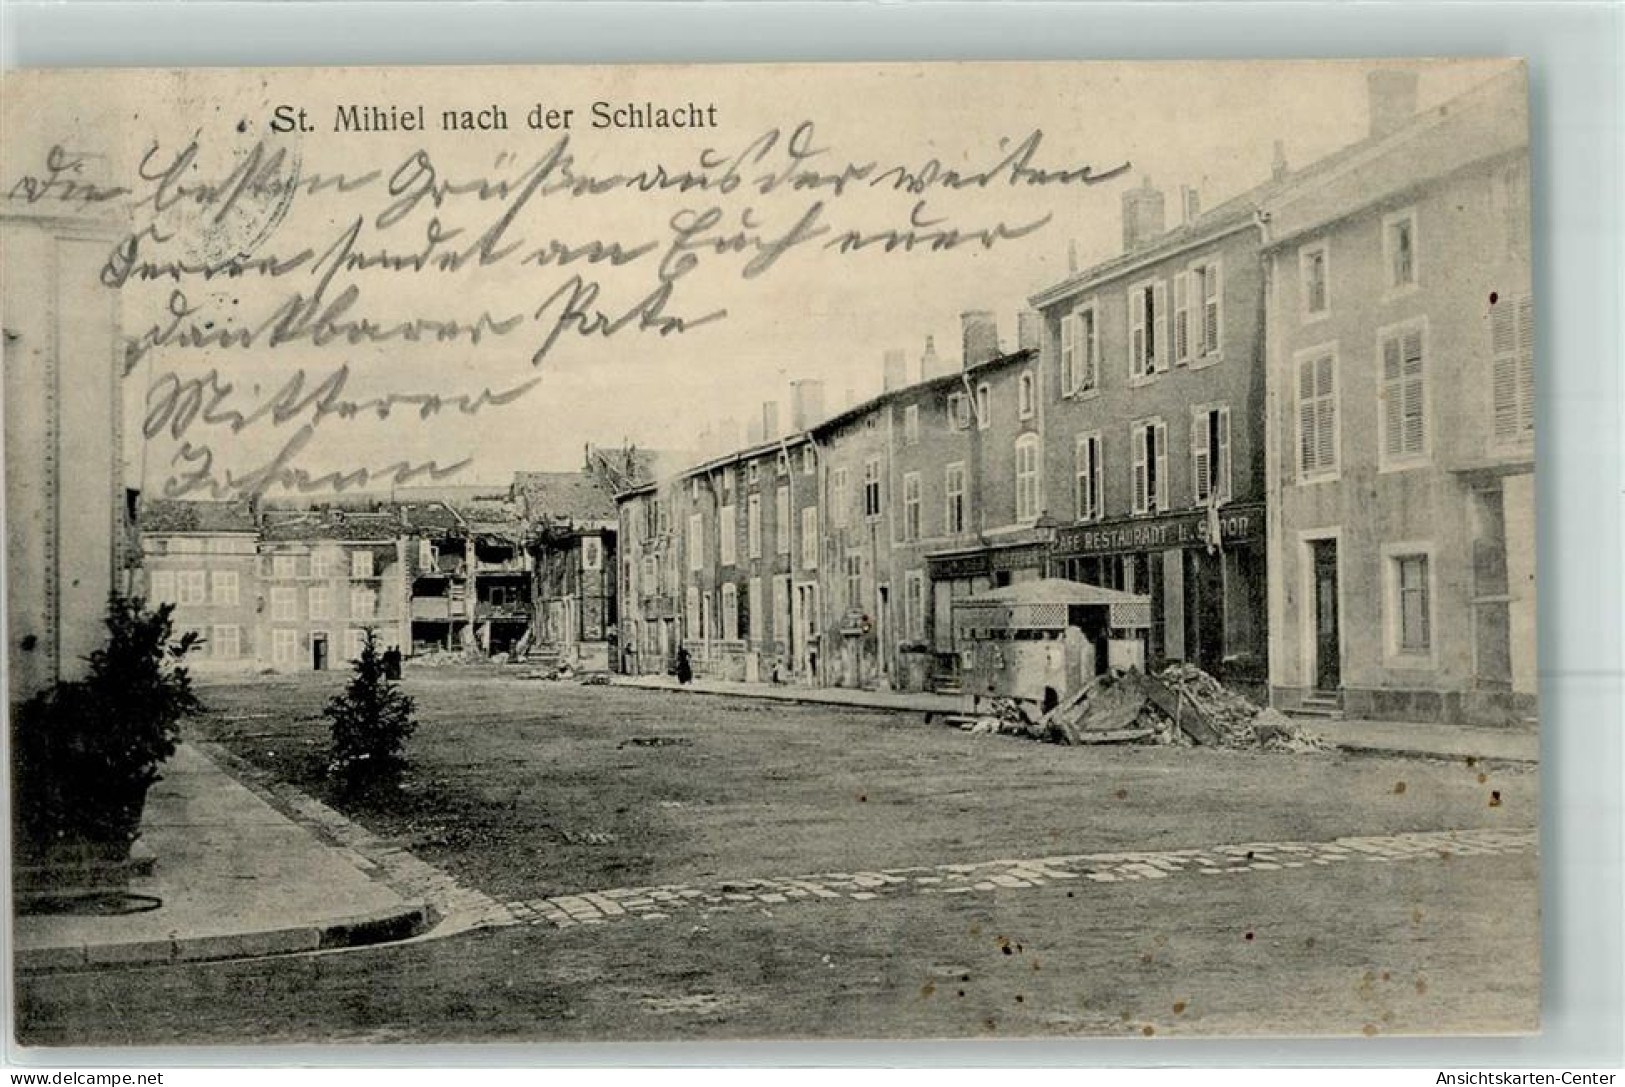 St. Mihiel nach der Schlacht
Die besten Grüße aus der weiten
Ferne sendet an Euch euer
dankbarer Pate
Mitterer
Johann
CAFE RESTAURANT L. SIMON
Ansichtskarten-Center